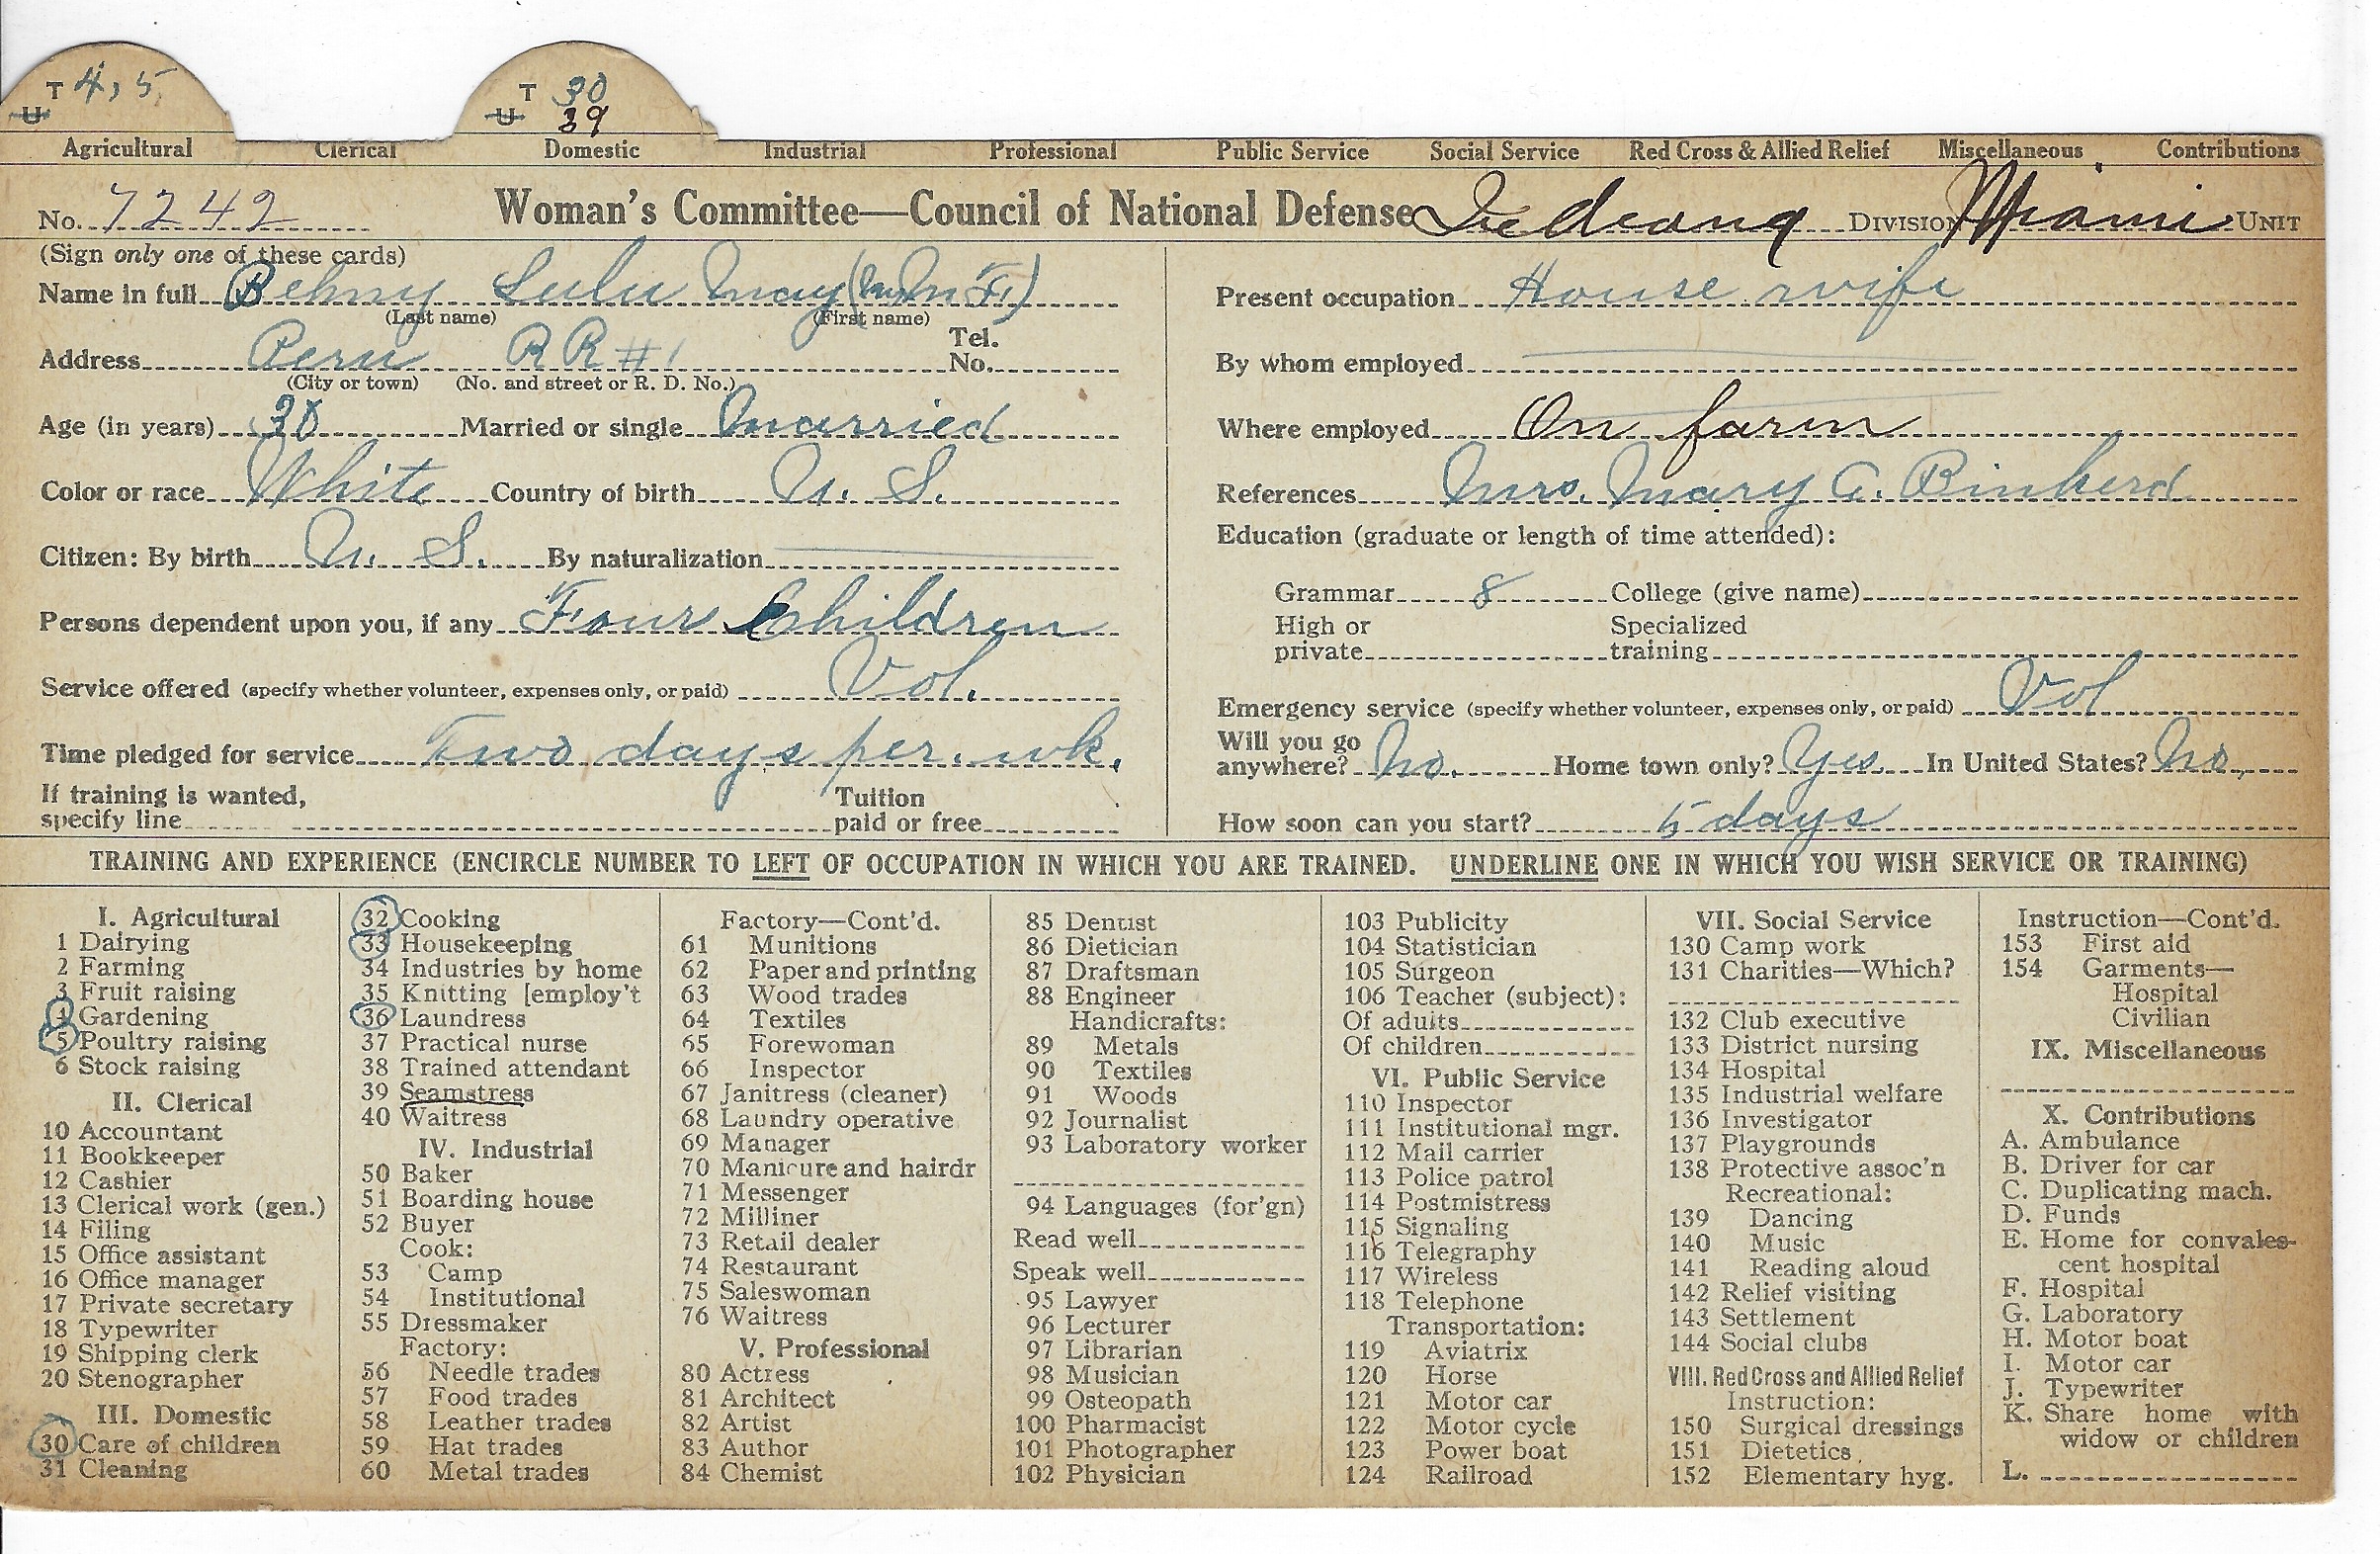 T 4, 5
U
T 30
U 39
Agricultural Clerical Domestic Industrial Professional Public Service Social Service Red Cross & Allied Relief Miscellaneous Contributions
No. 7242 Woman's Committee—Council of National Defense Indiana Division Miami Unit
(Sign only one of these cards)
Name in full Behny Lulu May (Mrs. F.)
(Last name) (First name)
Address Peru RR #1 Tel. No.
(City or town) (No. and street or R. D. No.)
Age (in years) 30 Married or single Married
Color or race White Country of birth U. S.
Citizen: By birth U. S. By naturalization
Persons dependent upon you, if any Four Children
Service offered (specify whether volunteer, expenses only, or paid) Vol.
Time pledged for service Two days per. wk.
If training is wanted, specify line Tuition paid or free
Present occupation House wife
By whom employed
Where employed On farm
References Mrs. Mary A. Binkerd
Education (graduate or length of time attended):
Grammar 8 College (give name)
High or private Specialized training
Emergency service (specify whether volunteer, expenses only, or paid) Vol
Will you go anywhere? No. Home town only? Yes In United States? No.
How soon can you start? 5 days
TRAINING AND EXPERIENCE (ENCIRCLE NUMBER TO LEFT OF OCCUPATION IN WHICH YOU ARE TRAINED. UNDERLINE ONE IN WHICH YOU WISH SERVICE OR TRAINING)
I. Agricultural
1 Dairying
2 Farming
3 Fruit raising
4 Gardening
5 Poultry raising
6 Stock raising
II. Clerical
10 Accountant
11 Bookkeeper
12 Cashier
13 Clerical work (gen.)
14 Filing
15 Office assistant
16 Office manager
17 Private secretary
18 Typewriter
19 Shipping clerk
20 Stenographer
III. Domestic
30 Care of children
31 Cleaning
32 Cooking
33 Housekeeping
34 Industries by home
35 Knitting [employ't
36 Laundress
37 Practical nurse
38 Trained attendant
39 Seamstress
40 Waitress
IV. Industrial
50 Baker
51 Boarding house
52 Buyer
Cook:
53 Camp
54 Institutional
55 Dressmaker
Factory:
56 Needle trades
57 Food trades
58 Leather trades
59 Hat trades
60 Metal trades
Factory—Cont'd.
61 Munitions
62 Paper and printing
63 Wood trades
64 Textiles
65 Forewoman
66 Inspector
67 Janitress (cleaner)
68 Laundry operative
69 Manager
70 Manicure and hairdr
71 Messenger
72 Milliner
73 Retail dealer
74 Restaurant
75 Saleswoman
76 Waitress
V. Professional
80 Actress
81 Architect
82 Artist
83 Author
84 Chemist
85 Dentist
86 Dietician
87 Draftsman
88 Engineer
Handicrafts:
89 Metals
90 Textiles
91 Woods
92 Journalist
93 Laboratory worker
94 Languages (for'gn)
Read well
Speak well
95 Lawyer
96 Lecturer
97 Librarian
98 Musician
99 Osteopath
100 Pharmacist
101 Photographer
102 Physician
103 Publicity
104 Statistician
105 Surgeon
106 Teacher (subject):
Of adults
Of children
VI. Public Service
110 Inspector
111 Institutional mgr.
112 Mail carrier
113 Police patrol
114 Postmistress
115 Signaling
116 Telegraphy
117 Wireless
118 Telephone
Transportation:
119 Aviatrix
120 Horse
121 Motor car
122 Motor cycle
123 Power boat
124 Railroad
VII. Social Service
130 Camp work
131 Charities—Which?
132 Club executive
133 District nursing
134 Hospital
135 Industrial welfare
136 Investigator
137 Playgrounds
138 Protective assoc'n
Recreational:
139 Dancing
140 Music
141 Reading aloud
142 Relief visiting
143 Settlement
144 Social clubs
VIII. Red Cross and Allied Relief
Instruction:
150 Surgical dressings
151 Dietetics
152 Elementary hyg.
Instruction—Cont'd.
153 First aid
154 Garments—
Hospital
Civilian
IX. Miscellaneous
X. Contributions
A. Ambulance
B. Driver for car
C. Duplicating mach.
D. Funds
E. Home for convales-
cent hospital
F. Hospital
G. Laboratory
H. Motor boat
I. Motor car
J. Typewriter
K. Share home with
widow or children
L.